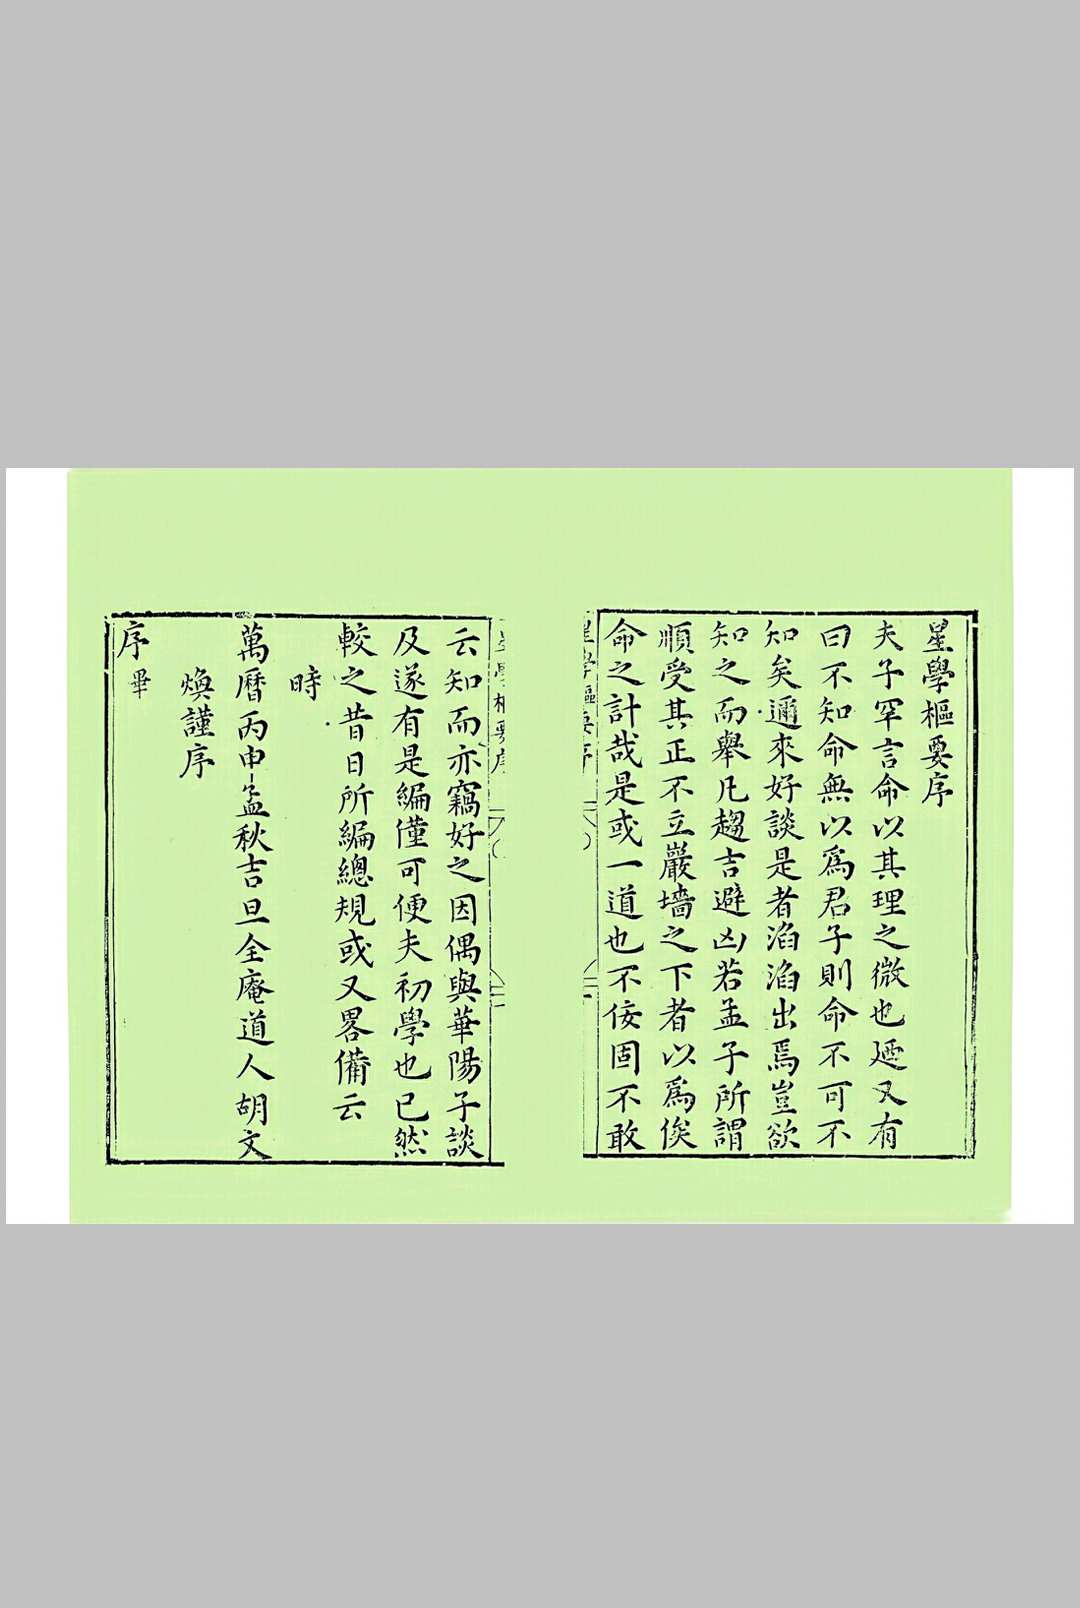 星學樞要序
夫子罕言命以其理之微也廼又有
曰不知命無以爲君子則命不可不
知矣邇來好談是者滔滔出焉豈欲
知之而舉凡趨吉避凶若孟子所謂
順受其正不立巖墻之下者以爲俟
命之計哉是或一道也不佞固不敢
星學樞要序
云知而亦竊好之因偶與華陽子談
及遂有是編僅可便夫初學也已然
較之昔日所編總規或又畧備云
時
萬曆丙申孟秋吉旦全庵道人胡文
煥謹序
序畢